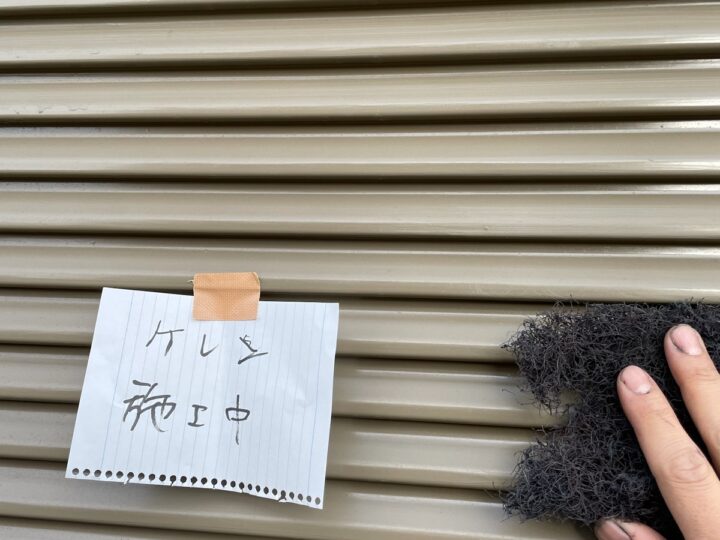 ケレン
施工中